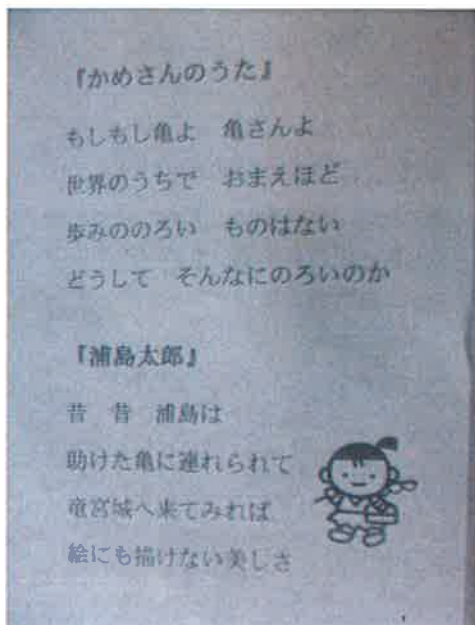 『かめさんのうた』
もしもし亀よ　亀さんよ
世界のうちで　おまえほど
歩みののろい　ものはない
どうして　そんなにのろいのか
『浦島太郎』
昔　昔　浦島は
助けた亀に連れられて
竜宮城へ来てみれば
絵にも描けない美しさ